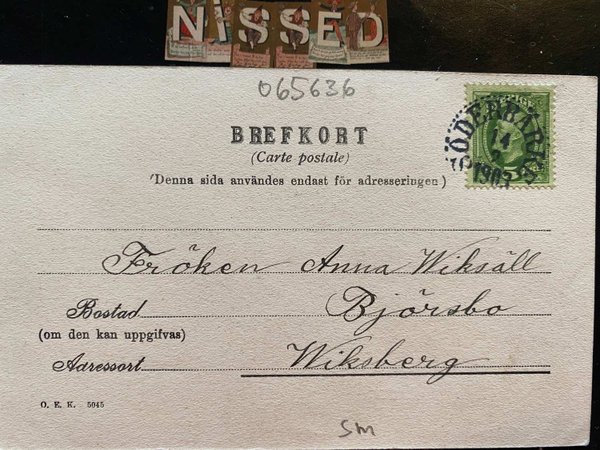 NISSED
065636
BREFKORT
(Carte postale)
(Denna sida användes endast för adresseringen)
SÖDERBÄRKE
14
1903
Fröken Anna Wiksäll
Bostad Björsbo
(om den kan uppgifvas)
Adressort Wiksberg
O. E. K. 5045
SM